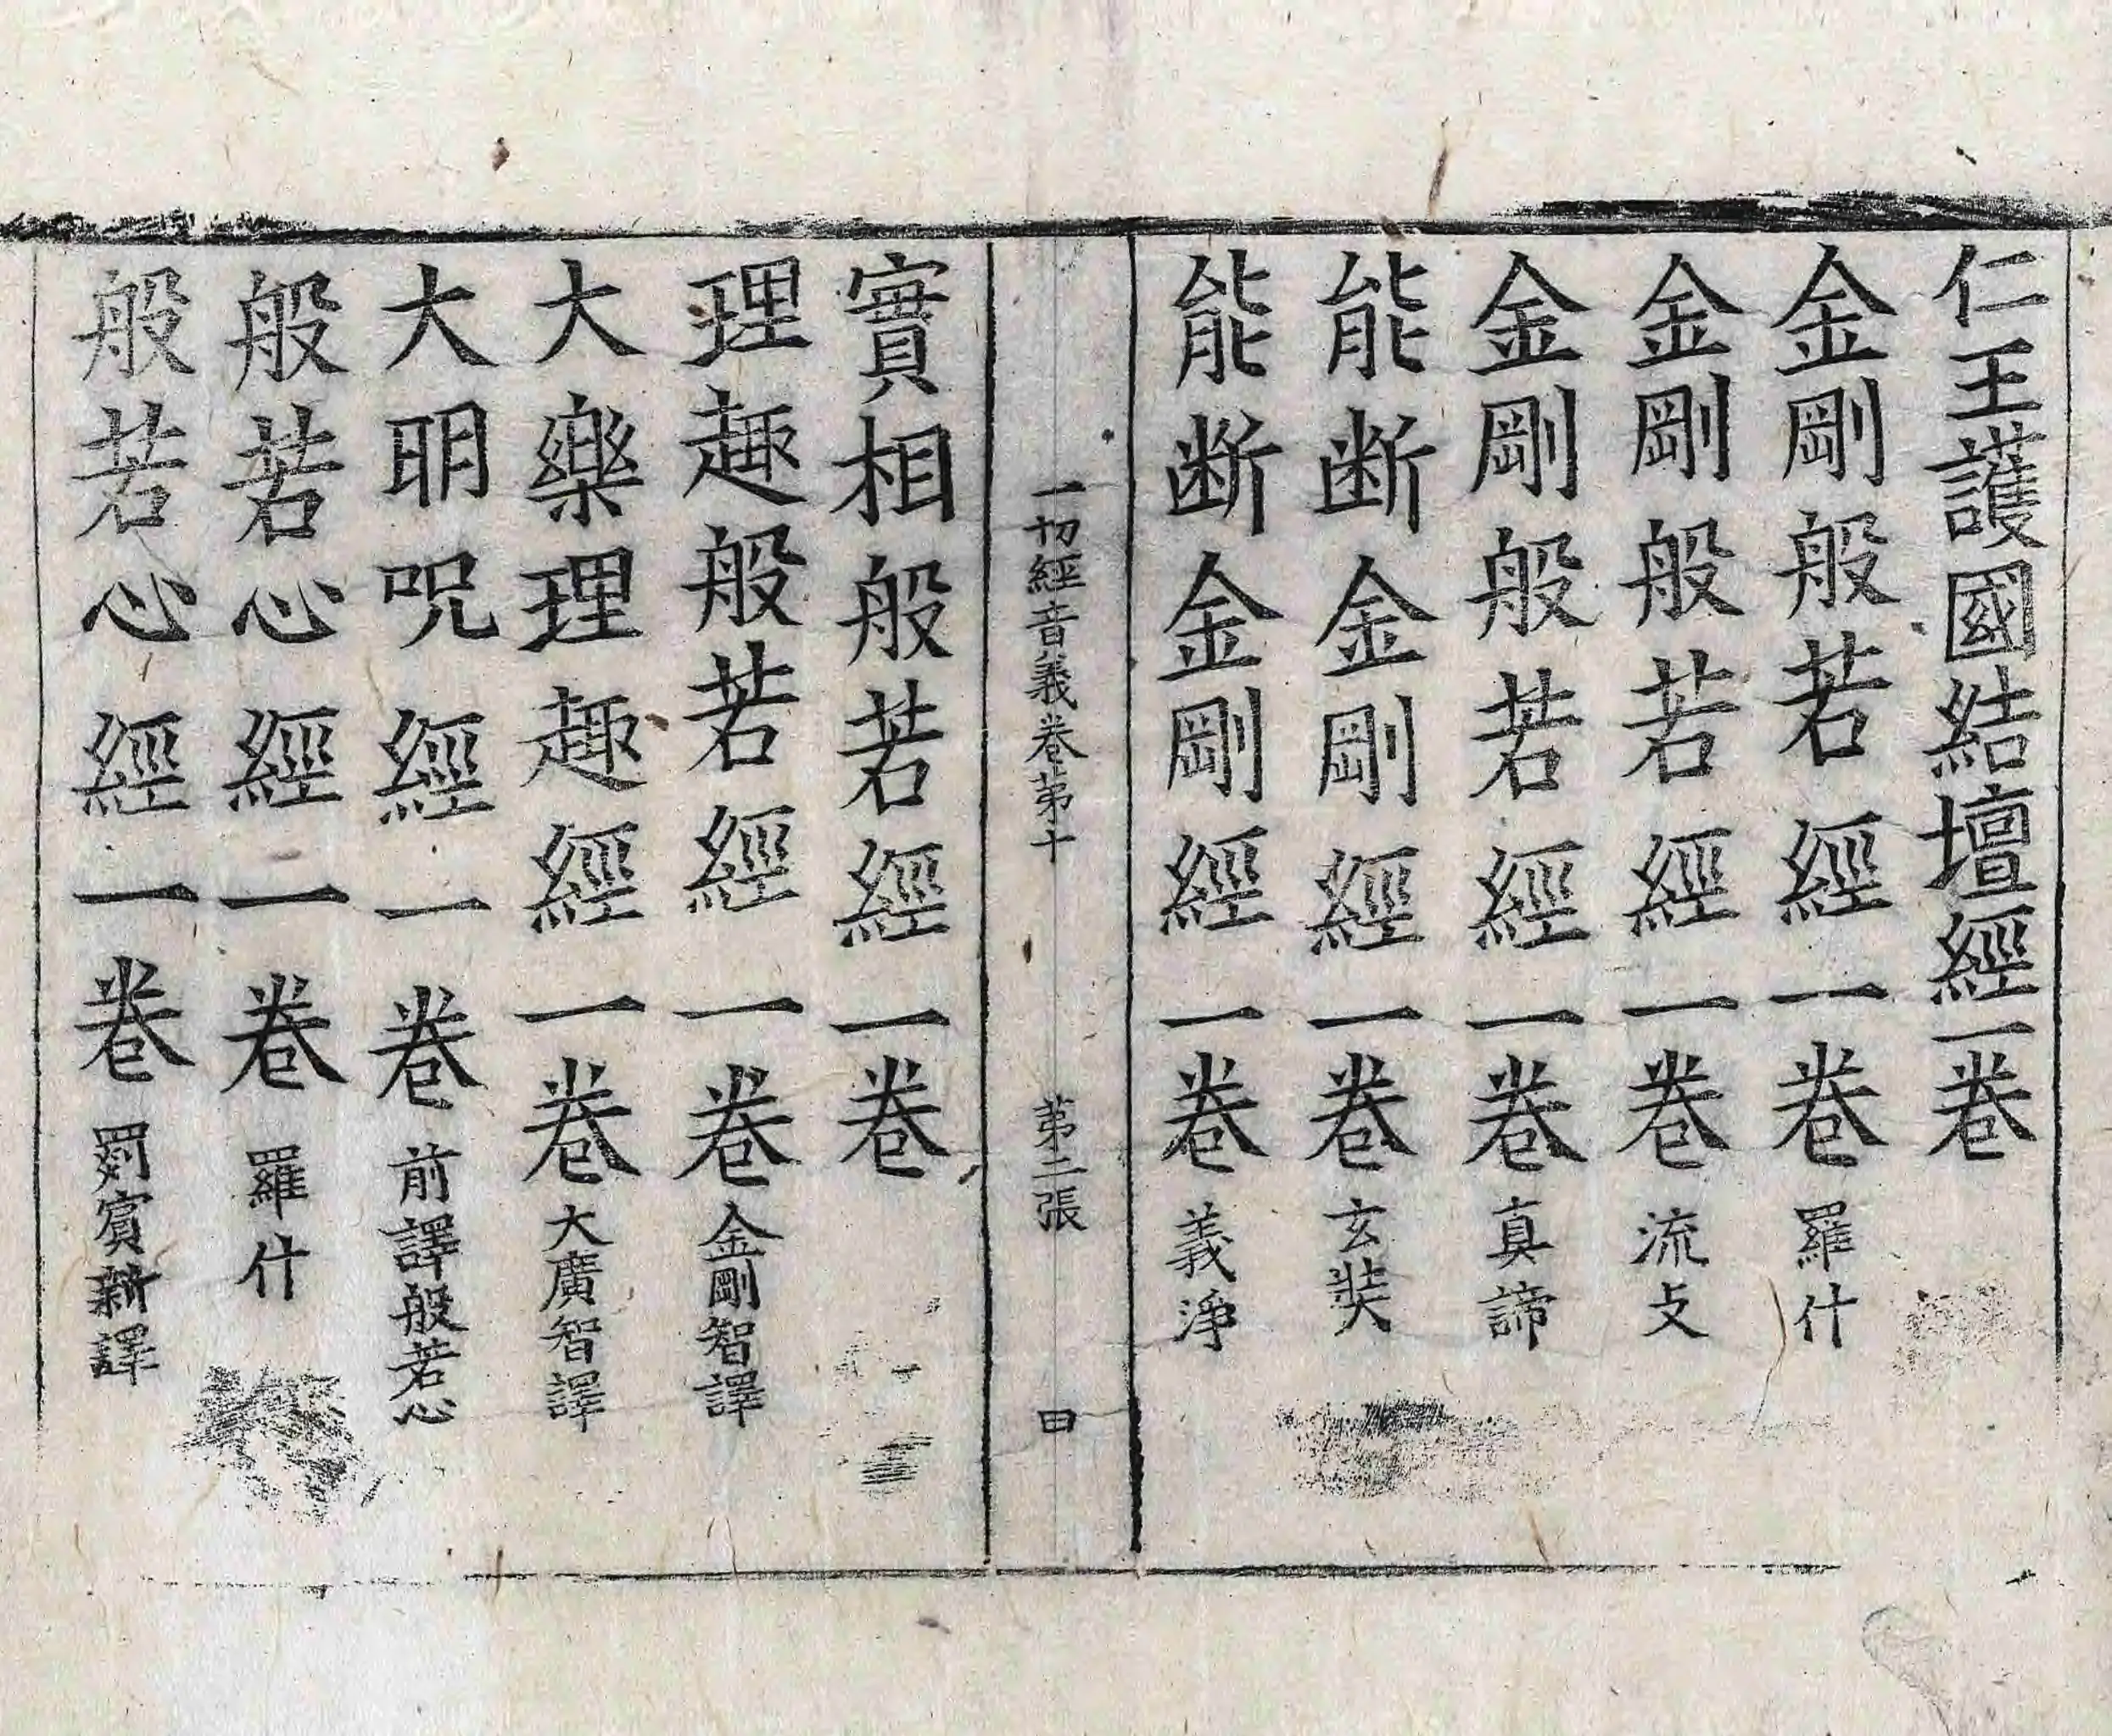 仁王護國結壇經一卷
金剛般若經一卷 羅什
金剛般若經一卷 流支
金剛般若經一卷 真諦
能断金剛經一卷 玄奘
能断金剛經一卷 義淨
一切經音義卷苐十 苐二張 田
實相般若經一卷
理趣般若經一卷 金剛智譯
大樂理趣經一卷 大廣智譯
大明呪經一卷 前譯般若心
般若心經一卷 羅什
般若心經一卷 罽賔新譯